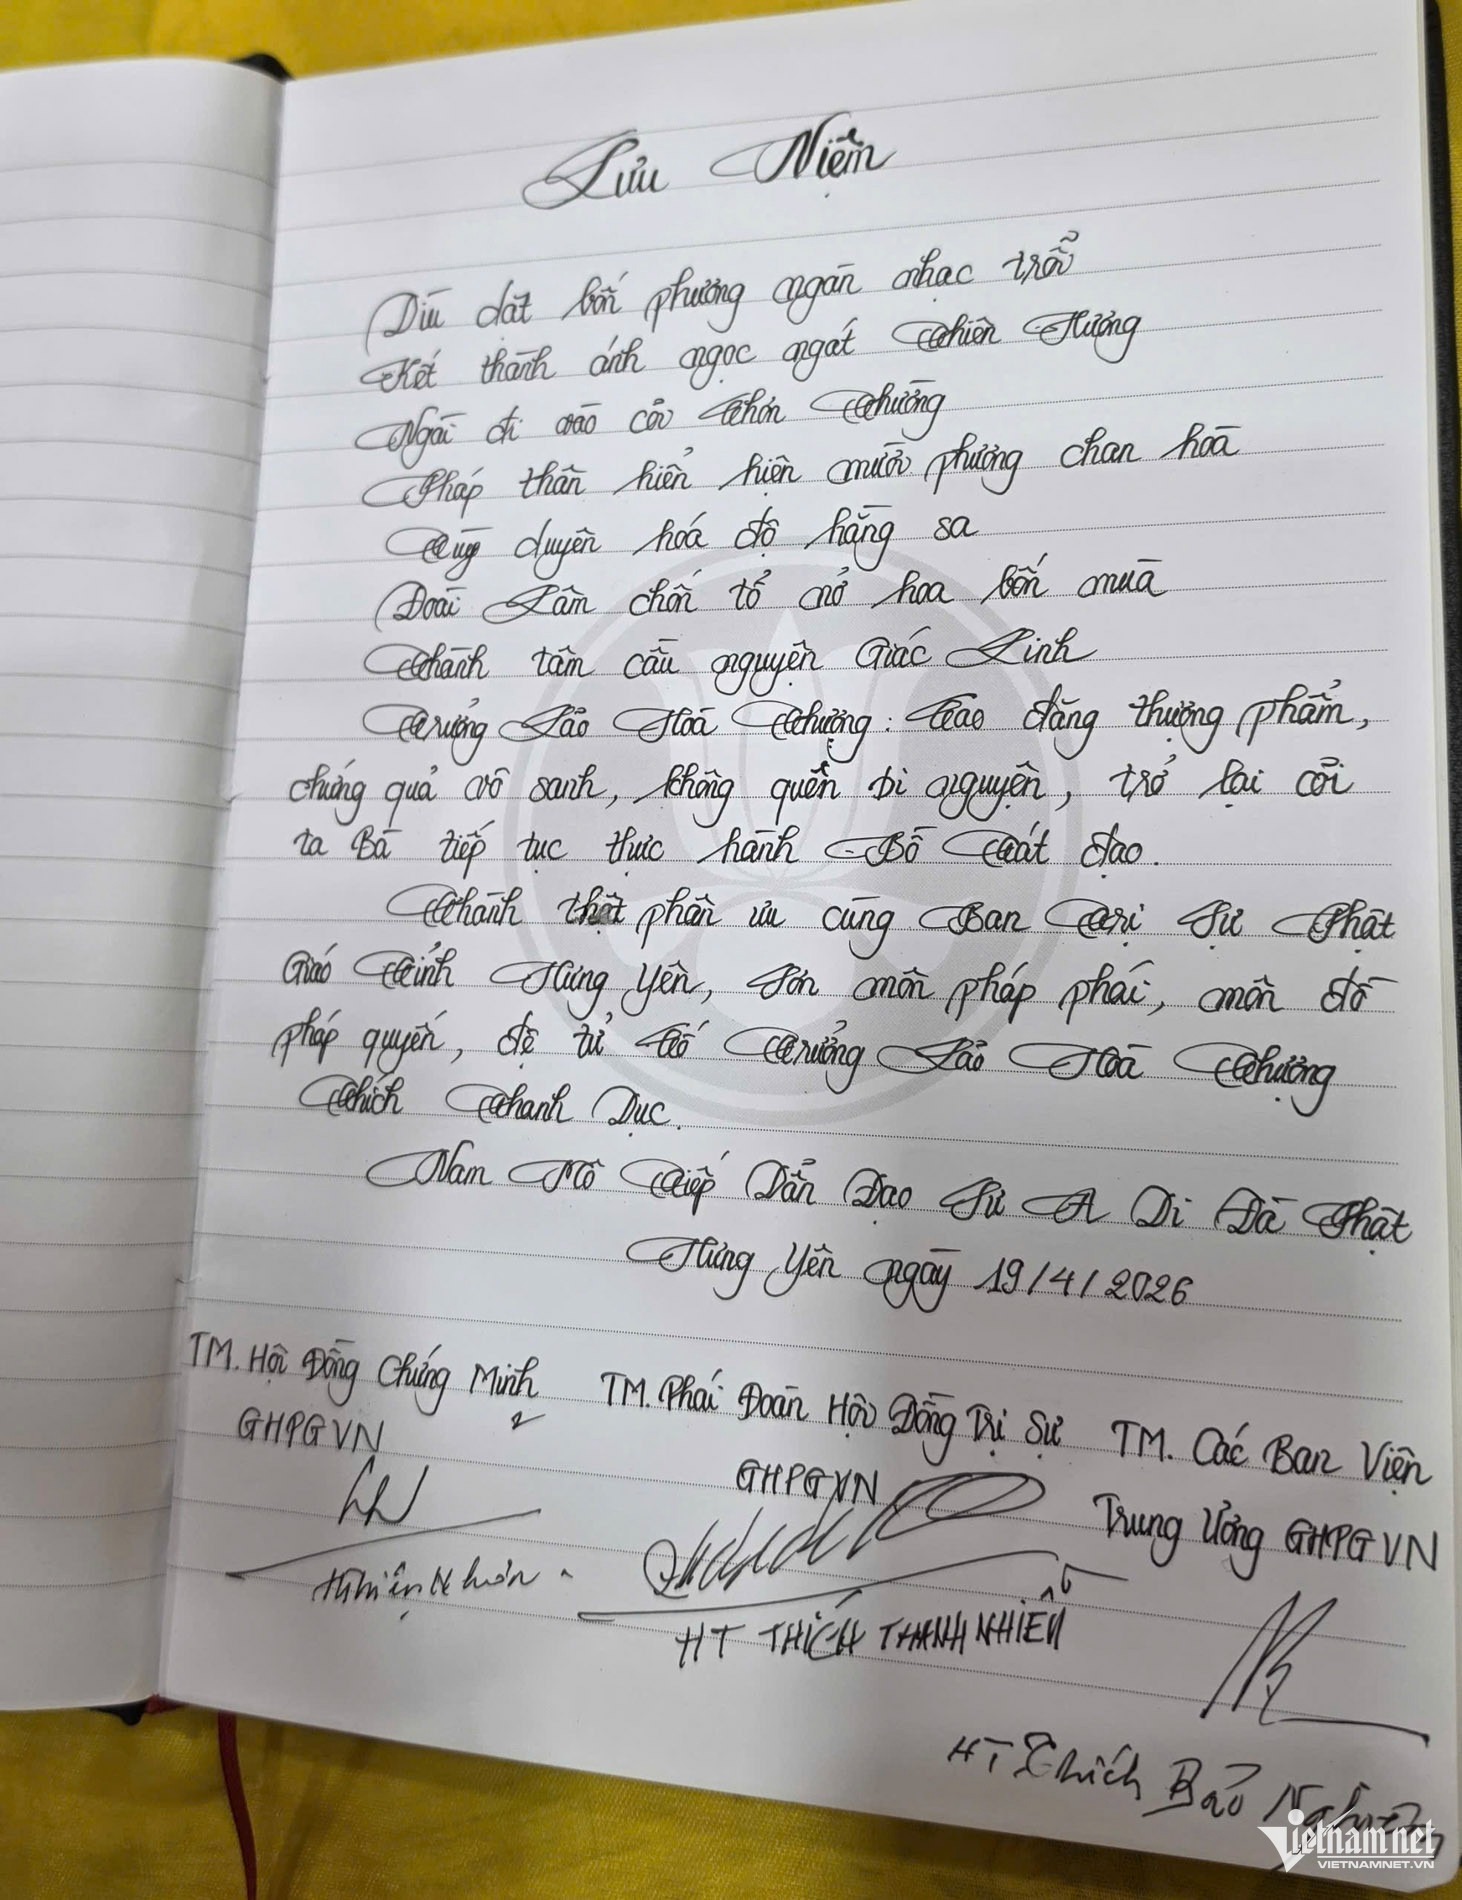 Lưu Niệm
Dìu dặt bốn phương ngàn nhạc trỗi
Kết thành ánh ngọc ngát Thiên Hương
Ngài đi vào cõi Chơn Thường
Pháp thân hiển hiện mười phương chan hoà
Tùy duyên hoá độ hằng sa
Đoài Lâm chốn tổ nở hoa bốn mùa
Thành tâm cầu nguyện Giác Linh
Trưởng Lão Hoà Thượng: Cao đăng thượng phẩm,
chứng quả vô sanh, không quên bi nguyện, trở lại cõi
ta Bà tiếp tục thực hành Bồ Tát đạo.
Thành thật phân ưu cùng Ban Trị Sự Phật
Giáo Tỉnh Hưng Yên, Sơn môn pháp phái, môn đồ
pháp quyến, đệ tử Cố Trưởng Lão Hoà Thượng
Thích Thanh Dục.
Nam Mô Tiếp Dẫn Đạo Sư A Di Đà Phật
Hưng Yên ngày 19/4/2026
TM. Hội Đồng Chứng Minh TM. Phái Đoàn Hội Đồng Trị Sự TM. Các Ban Viện
GHPGVN GHPGVN Trung Ương GHPGVN
Thiện Nhơn
HT THÍCH THANH NHIỄU
HT Thích Bảo Nghiêm
Vietnamnet
VIETNAMNET.VN